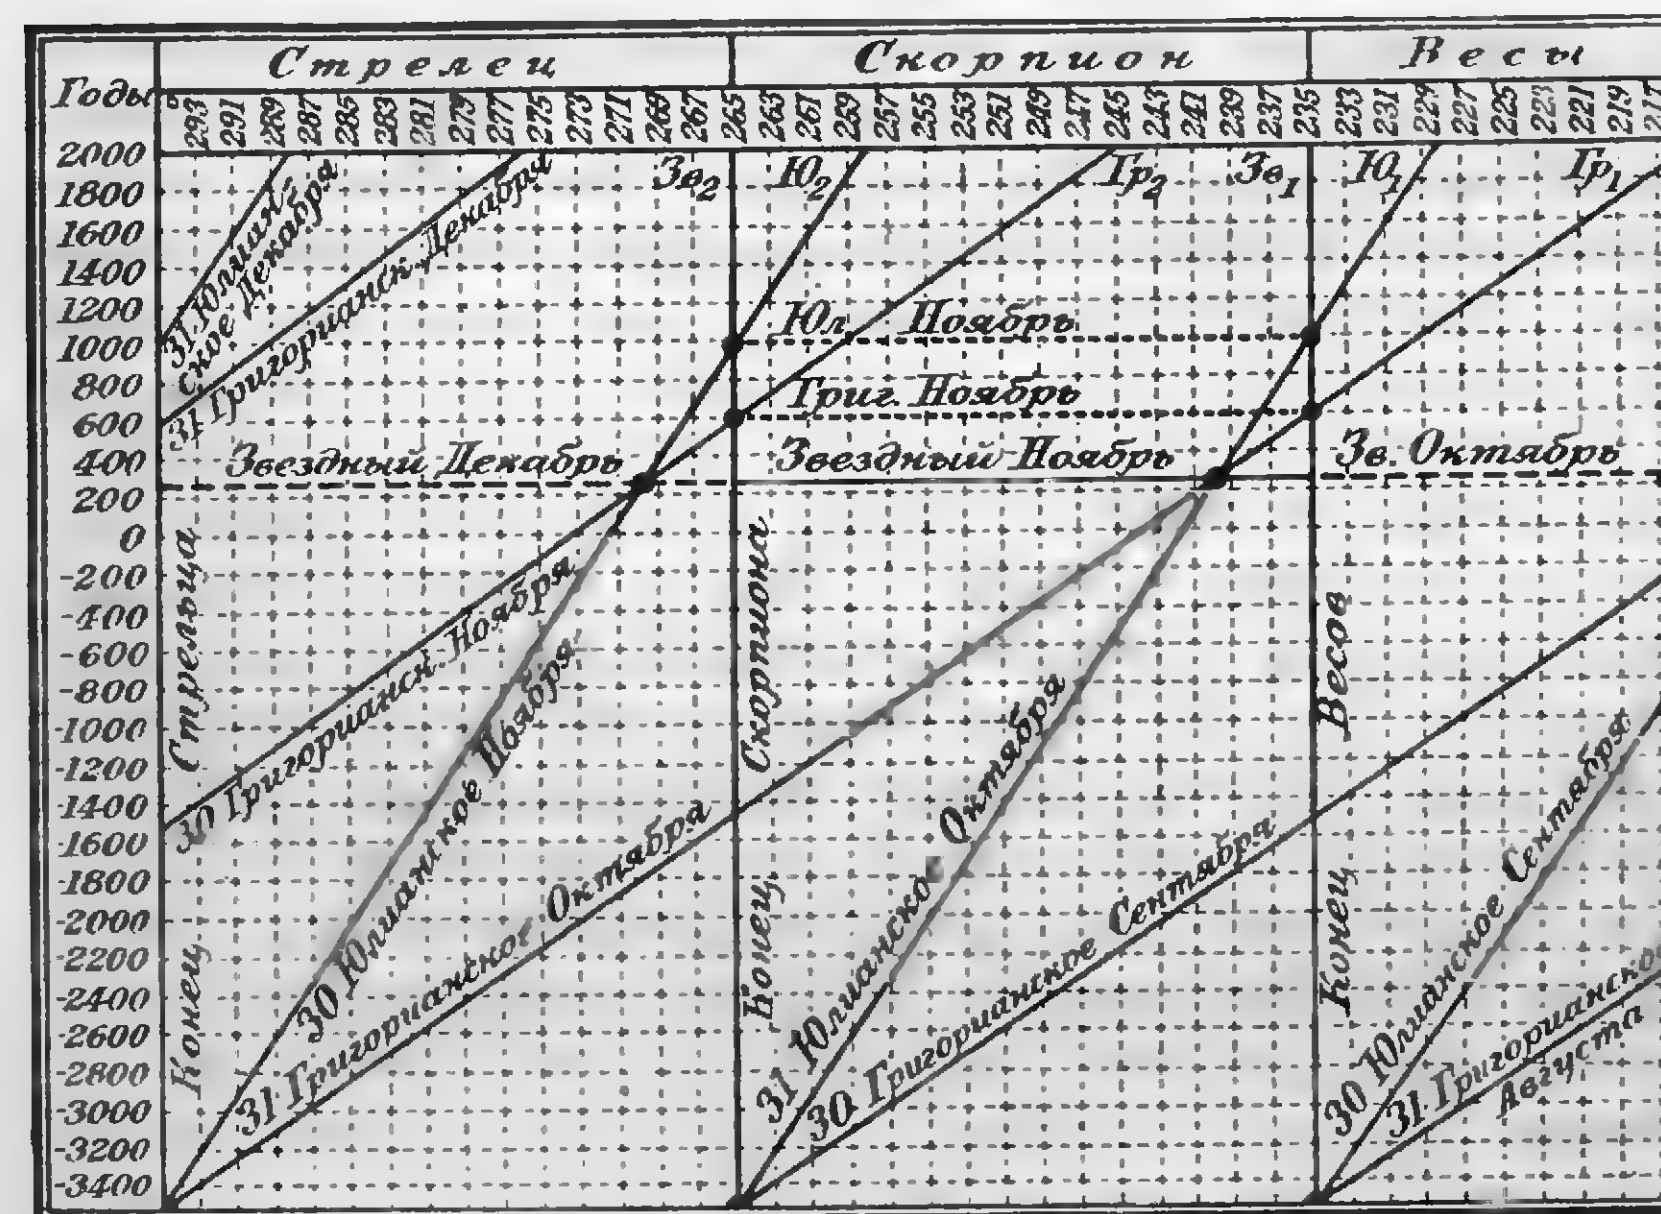 Стрелец Скорпион Весы
Годы 0° 293 291 289 287 285 283 281 279 277 275 273 271 269 267 265 263 261 259 257 255 253 251 249 247 245 243 241 239 237 235 233 231 229 227 225 223 221 219 217
2000
1800
1600
1400
1200
1000
800
600
400
200
0
-200
-400
-600
-800
-1000
-1200
-1400
-1600
-1800
-2000
-2200
-2400
-2600
-2800
-3000
-3200
-3400
Зв2 Ю2 Гр2 Зв1 Ю1 Гр1
31 Юлиан-
ское Декабря
31 Григорианск. Декабря
Юл. Ноябрь
Григ. Ноябрь
Звездный Декабрь Звездный Ноябрь Зв. Октябрь
Конец Стрельца
Конец Скорпиона
Конец Весов
30 Григорианск. Ноября
30 Юлианское Ноября
31 Григорианское Октября
31 Юлианское Октября
30 Григорианское Сентября
30 Юлианское Сентября
31 Григорианско
Августа